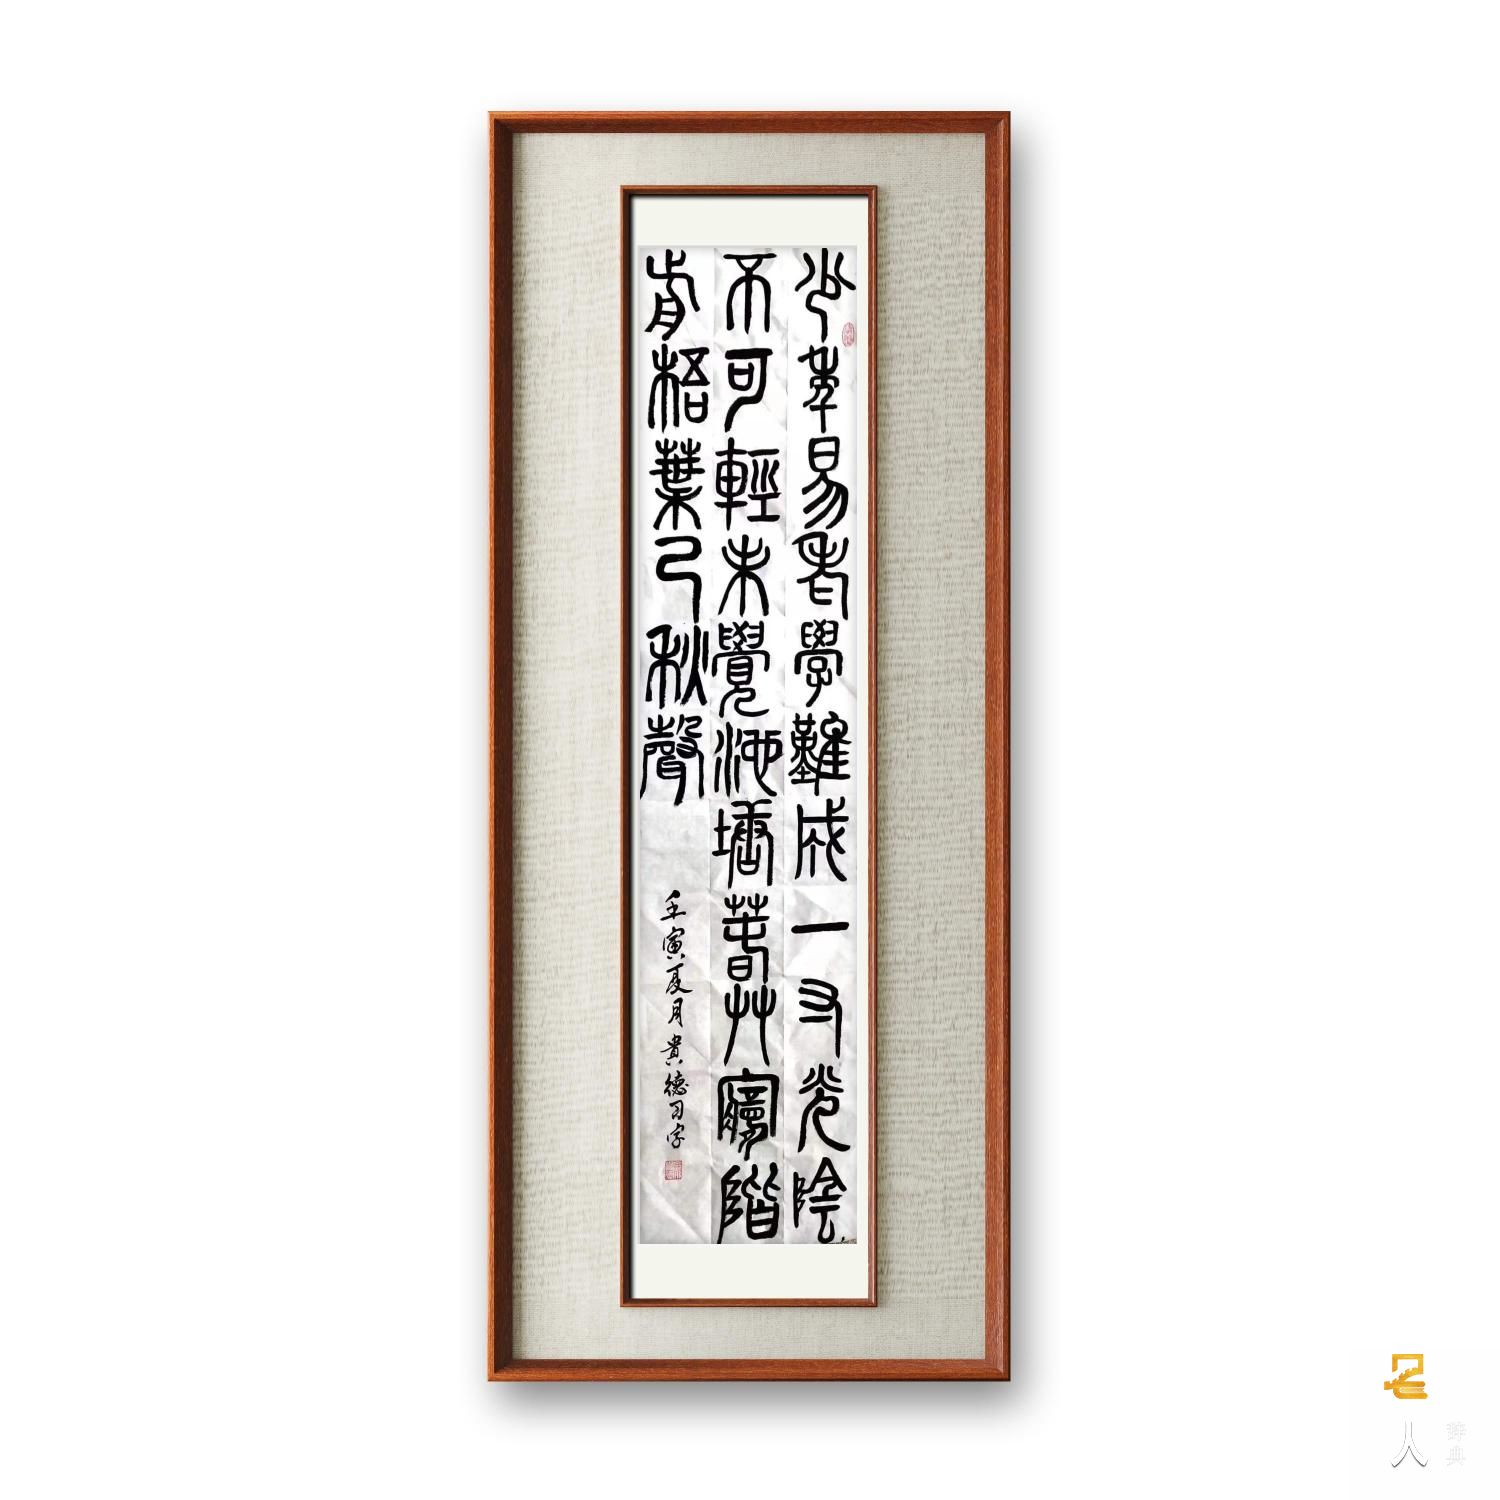 少年易老學難成一寸光陰
不可輕未覺池塘春草夢階
前梧葉已秋聲
壬寅夏月貴德习字
人
辞典